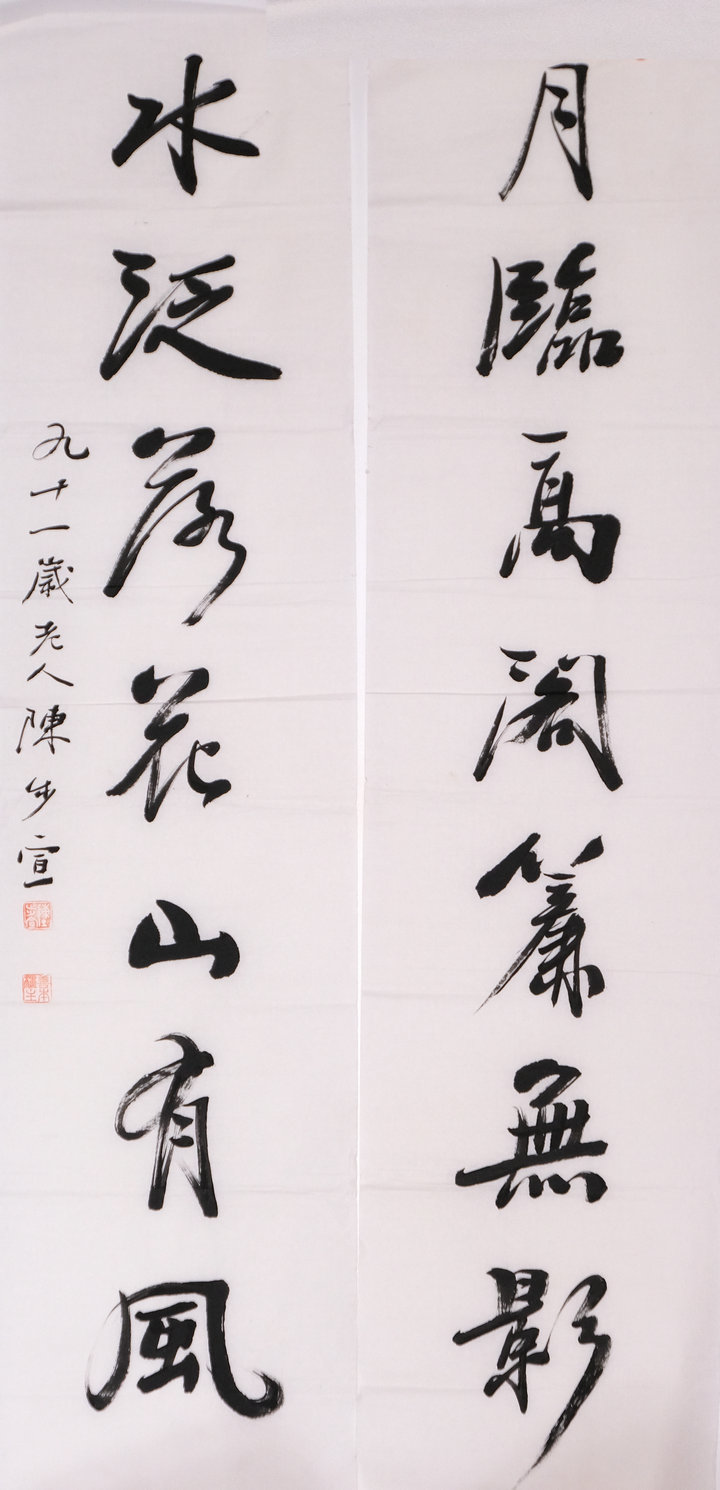 月臨高閣簾無影
水泛落花山有風
九十一歲老人陳步宣